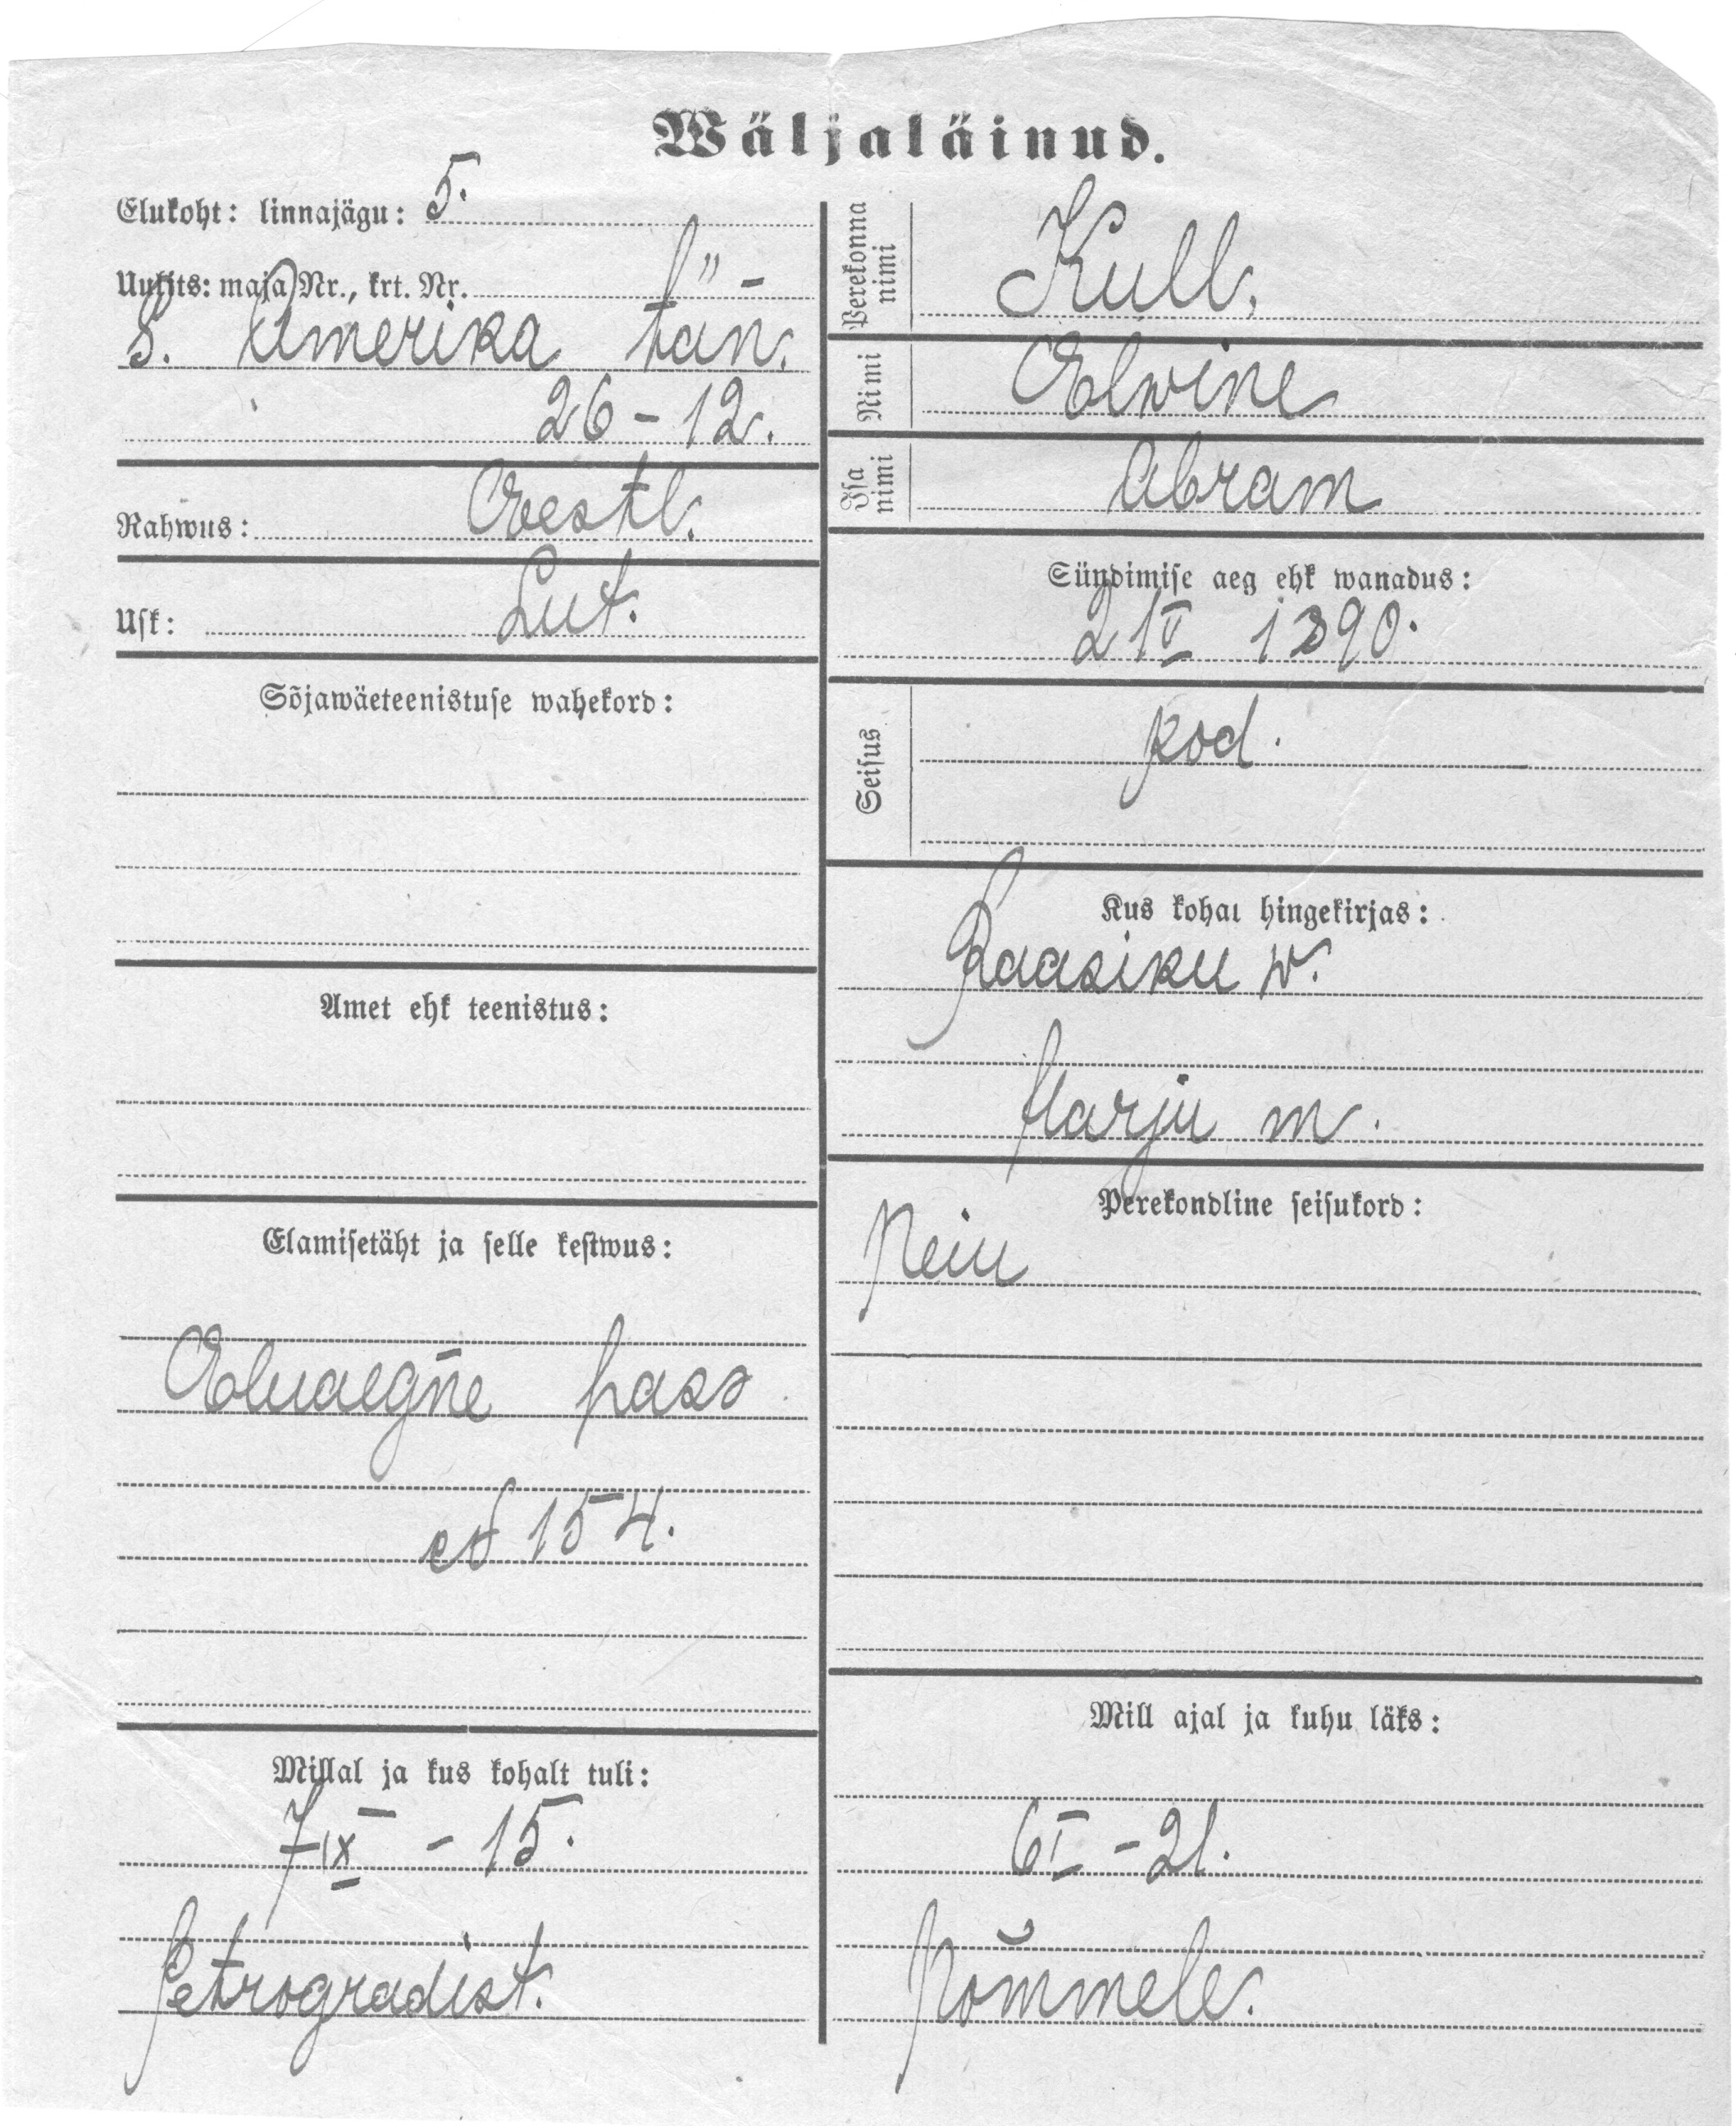 Wäljaläinud.
Elukoht: linnajägu: 5.
Uulits: maja Nr., krt. Nr.
S. Amerika tän.
26 – 12.
Rahwus: Eestl.
Usk: Lut.
Sõjawäeteenistuse wahekord:
Amet ehk teenistus:
Elamisetäht ja selle kestwus:
Eluaegne pass
154.
Millal ja kus kohalt tuli:
7 IX – 15.
Petrogradist.
Perekonna nimi
Kull,
Nimi
Elwine
Isa nimi
Abram
Sündimise aeg ehk wanadus:
21 V 1890.
Seisus
kod.
Kus kohat hingekirjas:
Raasiku w.
Harju m.
Perekondline seisukord:
Neiu
Mill ajal ja kuhu läks:
6 I – 21.
Nõmmele.